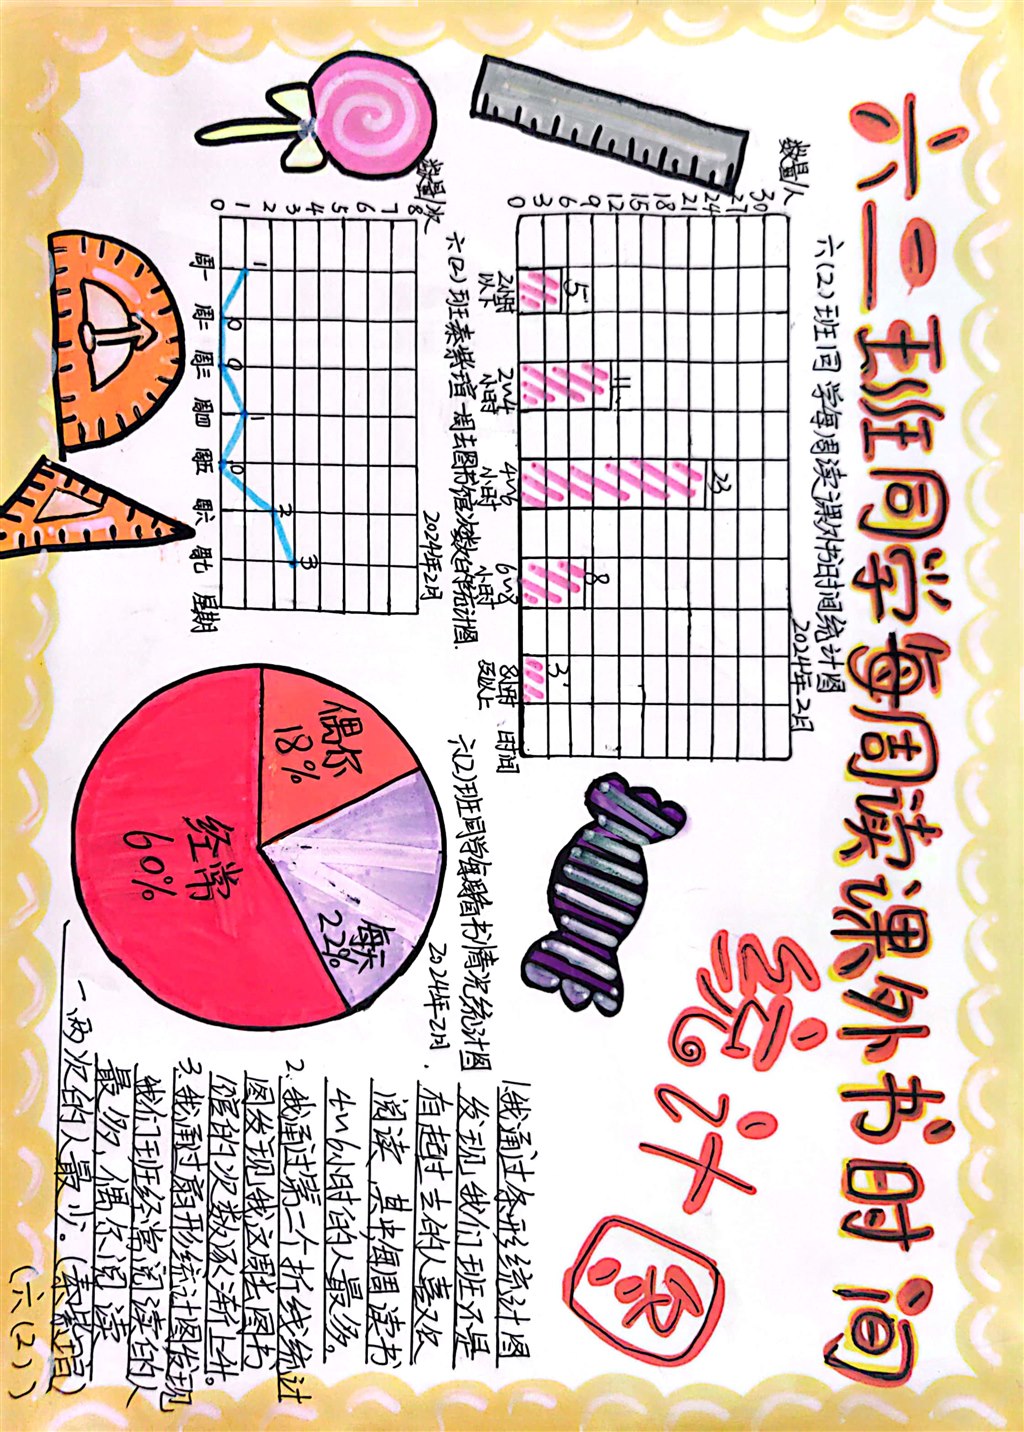 六二班同学每周读课外书时间
统计图
六(2)班同学每周读课外书时间统计图
2024年2月
数量/人
30
27
24
21
18
15
12
9
6
3
0
5
11
23
8
3
2小时以下
2~4小时
4~6小时
6~8小时
8小时及以上
时间
六(2)班秦紫瑄一周去图书馆次数统计图.
2024年2月
数量/次
8
7
6
5
4
3
2
1
0
1
0
0
1
0
2
3
周一
周二
周三
周四
周五
周六
周七
星期
六(2)班同学每周看书情况统计图
2024年2月.
偶尔
18%
每天
22%
经常
60%
1.我通过条形统计图
发现我们班不是
有超过一半的人喜欢
阅读 其中每周读书
4~6小时的人最多。
2.我通过第二个折线统计
图发现我这周去图书
馆的次数逐渐上升。
3.我通过扇形统计图发现
我们班经常阅读的人
最多,偶尔阅读
一两次的人最少。(秦紫瑄)
(六(2))